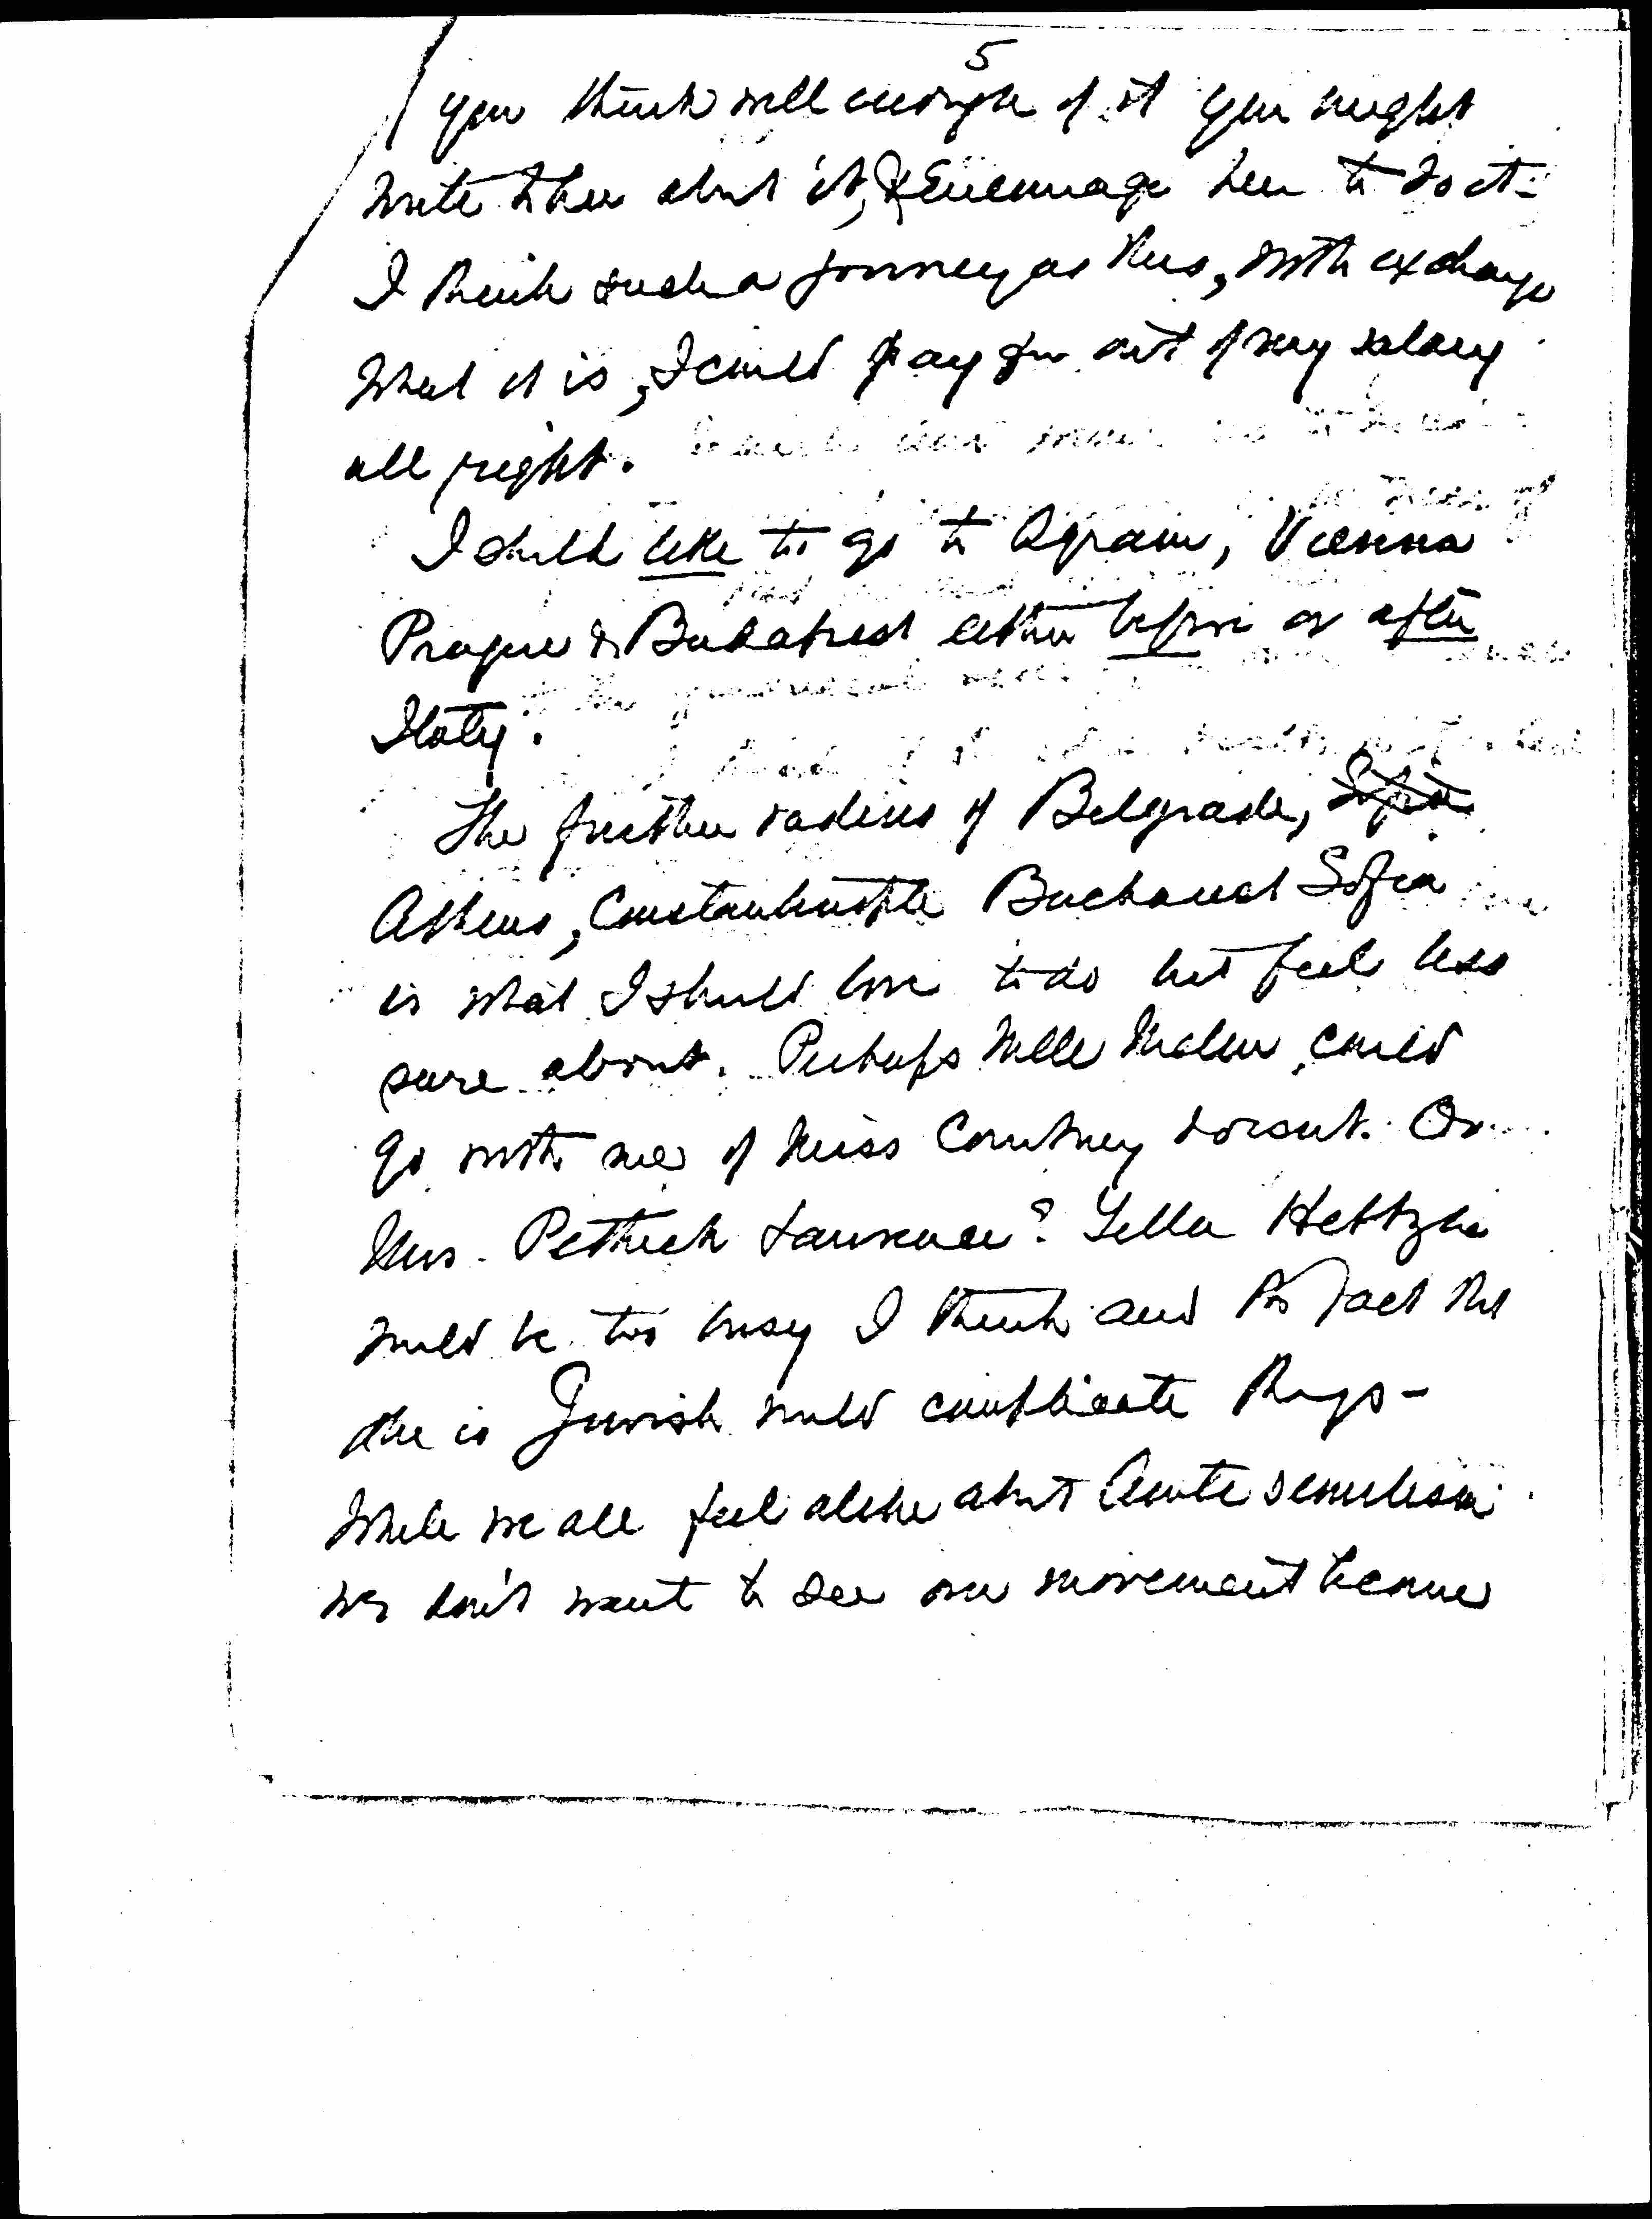 5
you think well enough of it you might
write to her about it, & encourage her to do it -
I think such a journey as this, with exchange
what it is, I could pay for out of my salary
all right.
I should like to go to Agram, Vienna
Prague & Budapest either before or after
Italy.
The further radius of Belgrade, Sofia
Athens, Constantinople Bucharest Sofia
is what I should love to do but feel less
sure about. Perhaps Mlle could
go with me if Miss Courtney doesn't. Or
Mrs. Pethick Lawrence? Yella Hertzka
would be too busy I think and the fact that
she is Jewish would complicate things -
While we all feel alike about Antisemitism
we don't want to see our movement become